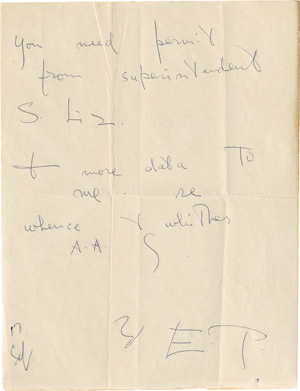 you need permit
from superintendent
S Liz.
+ more data To
me. re
whence & whither
A.A
E.P.